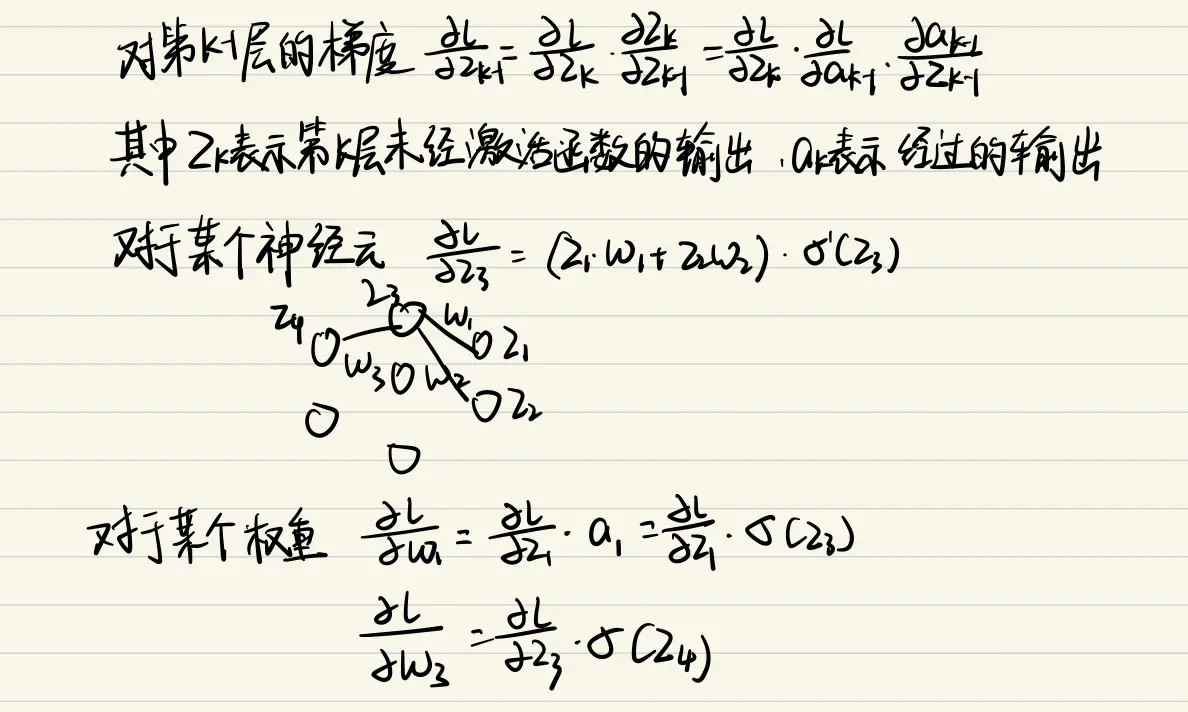 对第k-1层的梯度 ∂L/∂Z_{k-1} = ∂L/∂Z_k · ∂Z_k/∂Z_{k-1} = ∂L/∂Z_k · ∂L/∂a_{k-1} · ∂a_{k-1}/∂Z_{k-1}
其中Z_k表示第k层未经激活函数的输出，a_k表示经过的输出
对于某个神经云 ∂L/∂Z_3 = (Z_1·W_1+Z_2W_2)·σ'(Z_3)
Z_3
Z_4 W_1
Z_1
W_3 W_2
Z_2
对于某个权重 ∂L/∂W_1 = ∂L/∂Z_1 · a_1 = ∂L/∂Z_1 · σ(Z_3)
∂L/∂W_3 = ∂L/∂Z_3 · σ(Z_4)